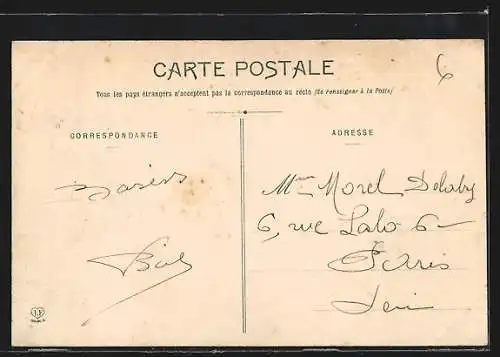 6
CARTE POSTALE
Tous les pays étrangers n'acceptent pas la correspondance au recto (Se renseigner à la Poste)
CORRESPONDANCE
ADRESSE
Baisers
Mme Morel Delaby
6, rue Lalo 6
Paris